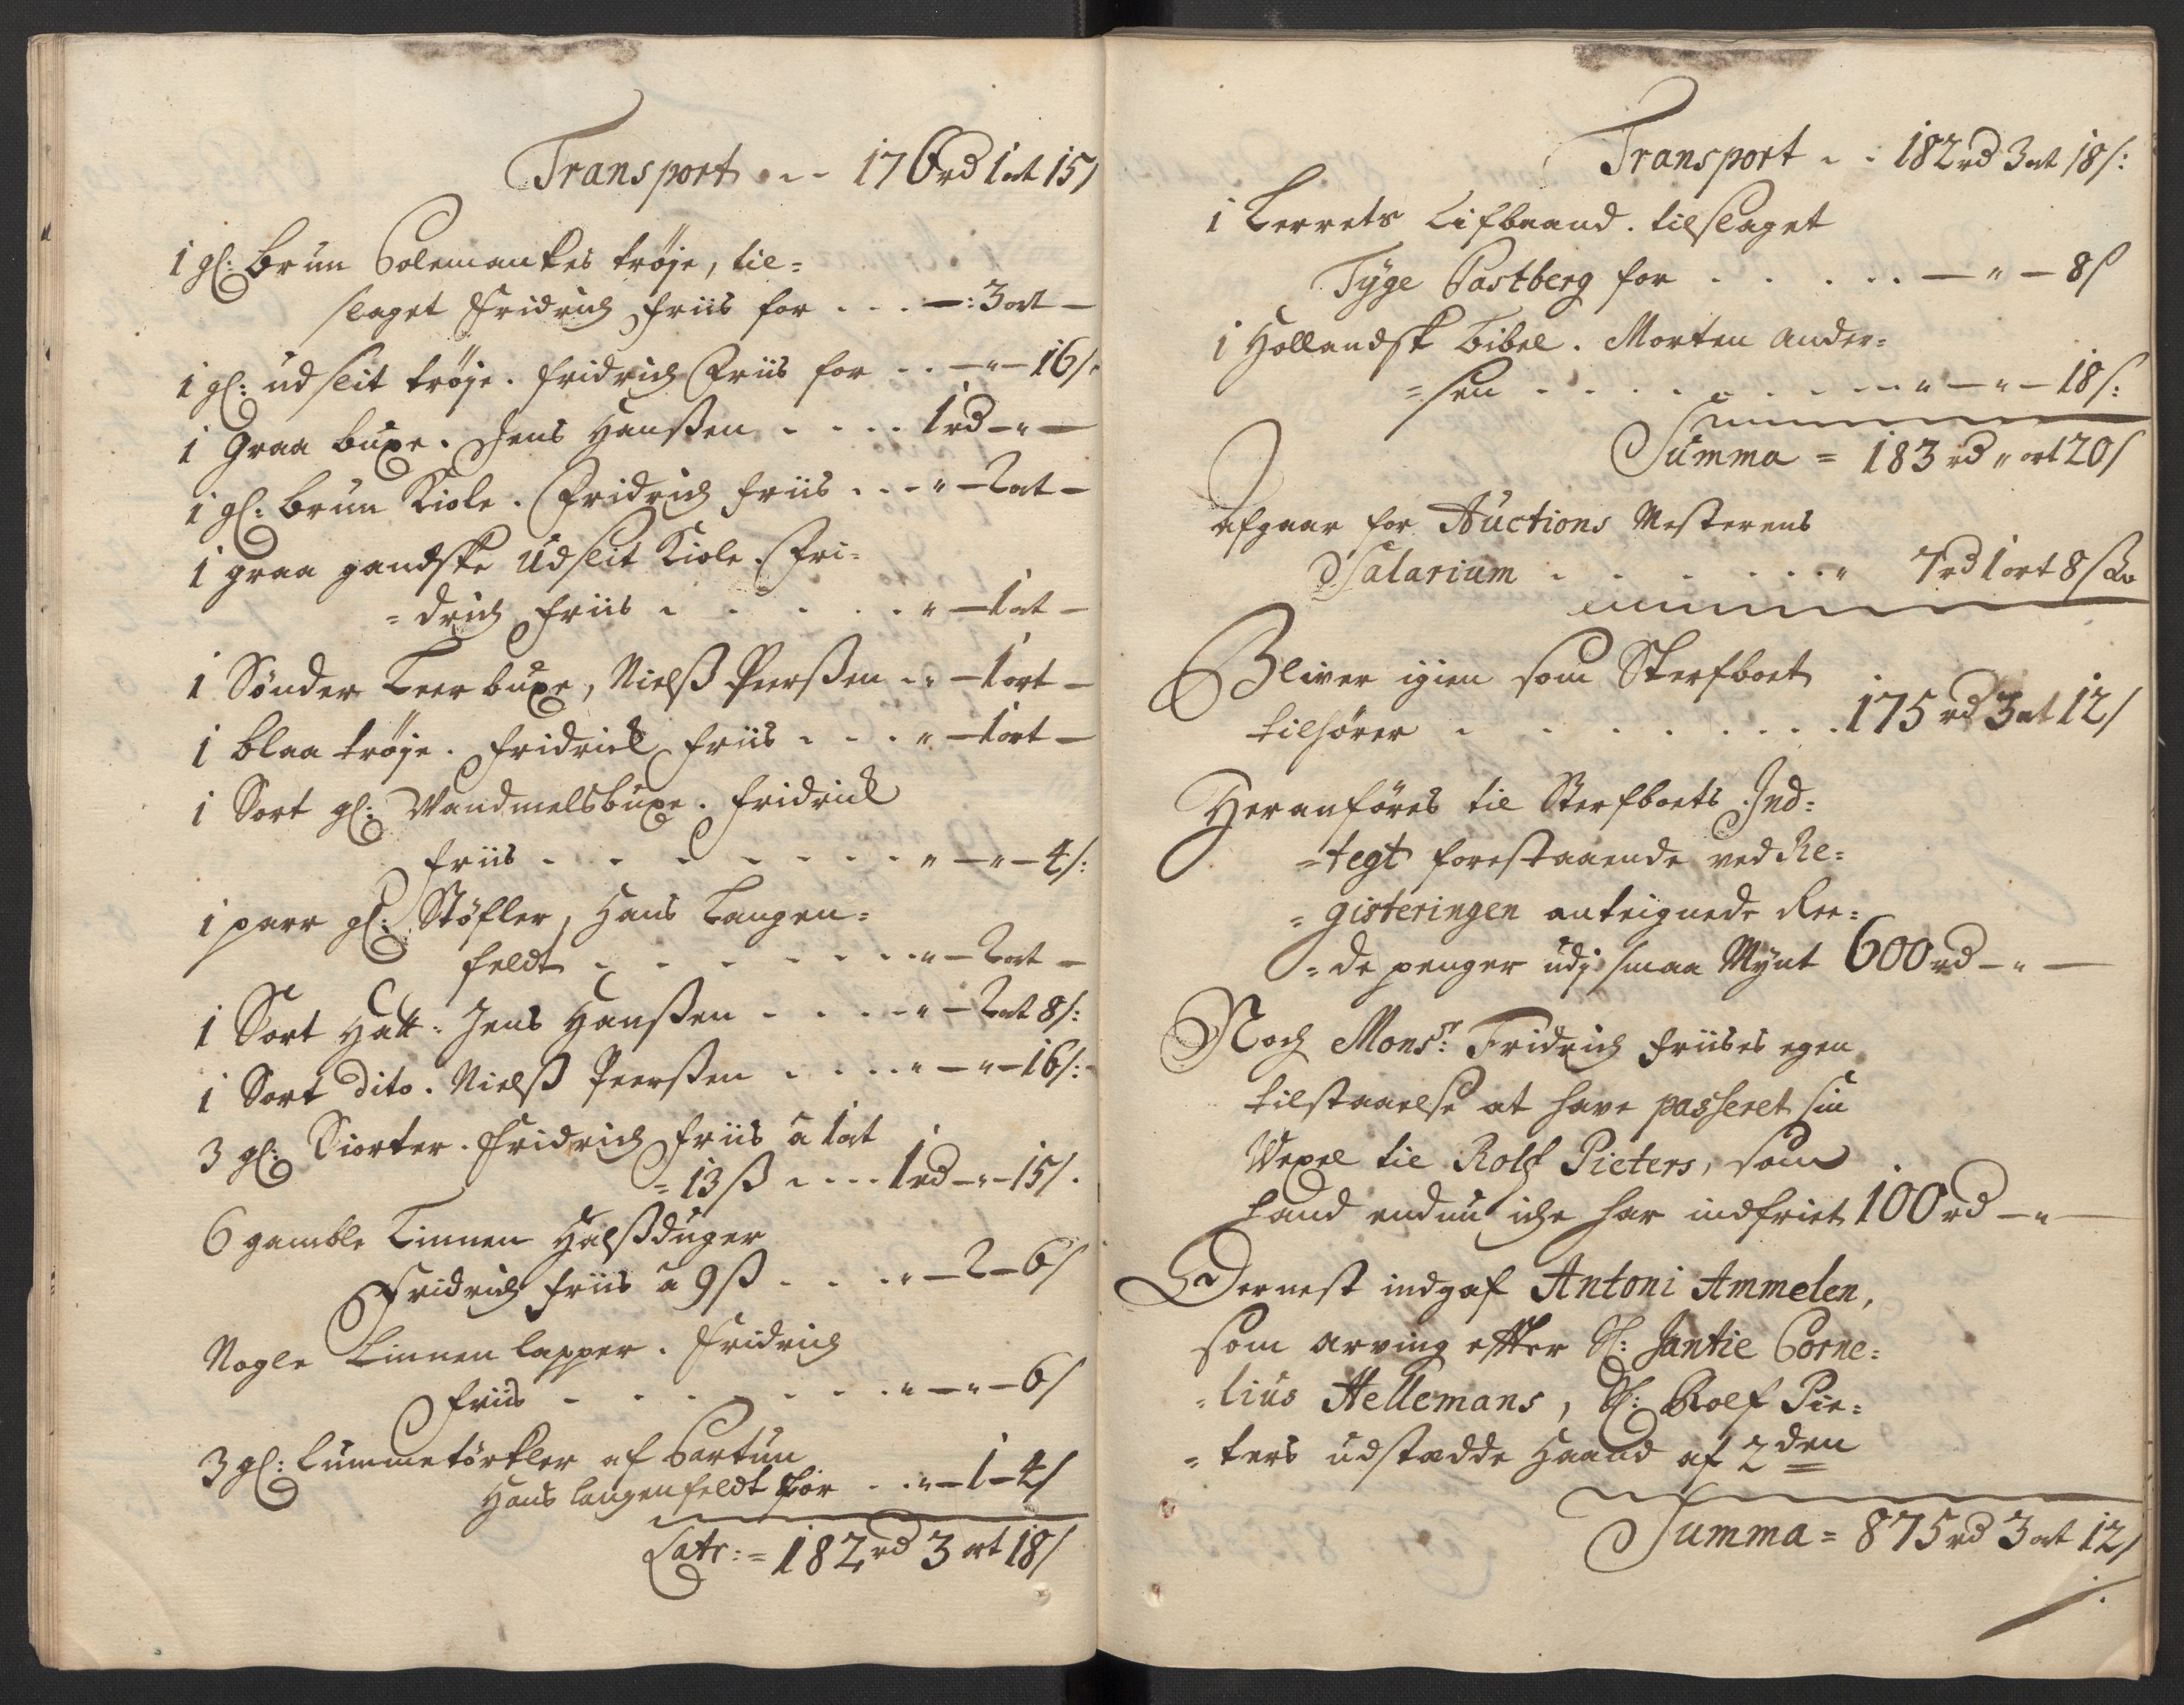 Transport . . - 176 rd 1 ort 15 s
1 gl: brun Colemankes trøje, til=
slaget Fridrich Friis for . . . —: 3 ort —
1 gl: udslit trøje. Fridrich Friis for . . — " — 16 s.
1 Graa buxe. Jens Hanßen . . . . 1 rd — " —
1 gl: brun Kiole. Fridrich Friis . . . " — 2 ort —
1 graa gandske Udslit Kiole. Fri=
=drich Friis . . . . . . " — 1 ort —
1 Sønder Leer buxe, Nielß Peerßen . . — 1 ort —
1 blaa trøje. Fridrich Friis . . . " — 1 ort —
1 Sort gl: Wandmelsbuxe. Fridrich
Friis . . . . . . . . " — " — 4 s:
1 parr gl: Støfler, Hans Langen=
feldt . . . . . . . " — 2 ort —
1 Sort Hatt. Jens Hanßen . . . . " — 2 ort 8 s:
1 Sort dito. Nielß Peerßen . . . . " — " — 16 s:
3 gl: Skiorter. Fridrich Friis a 1 ort
=13 ß . . . . 1 rd — " — 15 s.
6 gamble Linnen Halßduger
Fridrich Friis a 9 ß . . . " — 2 — 6 s
Nogle Linnen lapper. Fridrich
Friis . . . . . . . " — " — 6 s
3 gl: Lummetørkler af Cartun
Hans Langenfeldt for . . " — 1 — 4 s
Latr: = 182 rd 3 ort 18 s
Transport . . 182 rd 3 ort 18 s:
1 Lerrets Lifbaand. tilslaget
Tÿge Castberg for . . . . . — " — 8 s
1 Hollandsk Bibel. Morten Ander=
=sen . . . . . . . . " — " — 18 s:
Summa = 183 rd " ort 20 s
Afgaar for Auctions Mesterens
Salarium . . . . . . . " 7 rd 1 ort 8 s
Bliver igien som Sterfboet
tilhører . . . . . . . . 175 rd 3 ort 12 s
Her anføres til Sterfboets Ind=
=tegt forestaaende ved Re=
=gisteringen anteignede Ree=
=de penger udj smaa Mynt 600 rd — " —
Noch Monsr: Fridrich Friises egen
tilstaaelse at have passeret sin
Wexel til Rolf Pieters, som
hand endnu iche har indfriet 100 rd — " —
Dernest indgaf Antoni Ammelen,
som arving effter Sl: Jantie Corne=
=lius Hellemans, Sl: Rolf Pie=
=ters udstædde Haand af 2den
Summa = 875 rd 3 ort 12 s